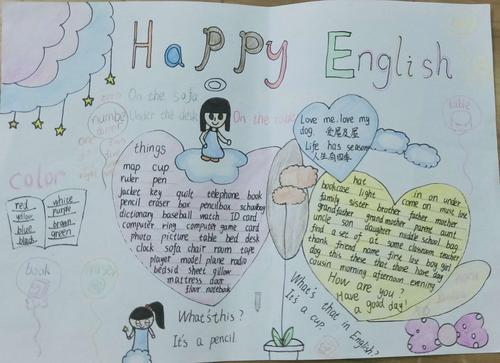 Happy English
On the sofa
Under the desk
On the
numbe
color
red
yellow
blue
black
white
purple
brown
green
book
things
map cup
ruler pen
jacket key quilt telephone book
pencil eraser box pencilbox schoolbag
dictionary baseball watch ID card
computer ring computer game card
photo picture table bed desk
clock sofa chair room tape
player model plane radio
bedside sheet pillow
mattress door
floor notebook
Love me. love my
dog. 爱屋及屋
Life has seasons
人生有四季
hat
bookcase light in on under
family sister brother come on must lose
father mother
grandfather grandmother parent aunt
uncle son daughter middle school bag
find a set of at some classroom teacher
thank friend name fine lose boy girl
dog this these that those have day
cousin morning afternoon evening
How are you?
Have a good day!
What's this?
It's a pencil.
What's that in English?
It's a cup.